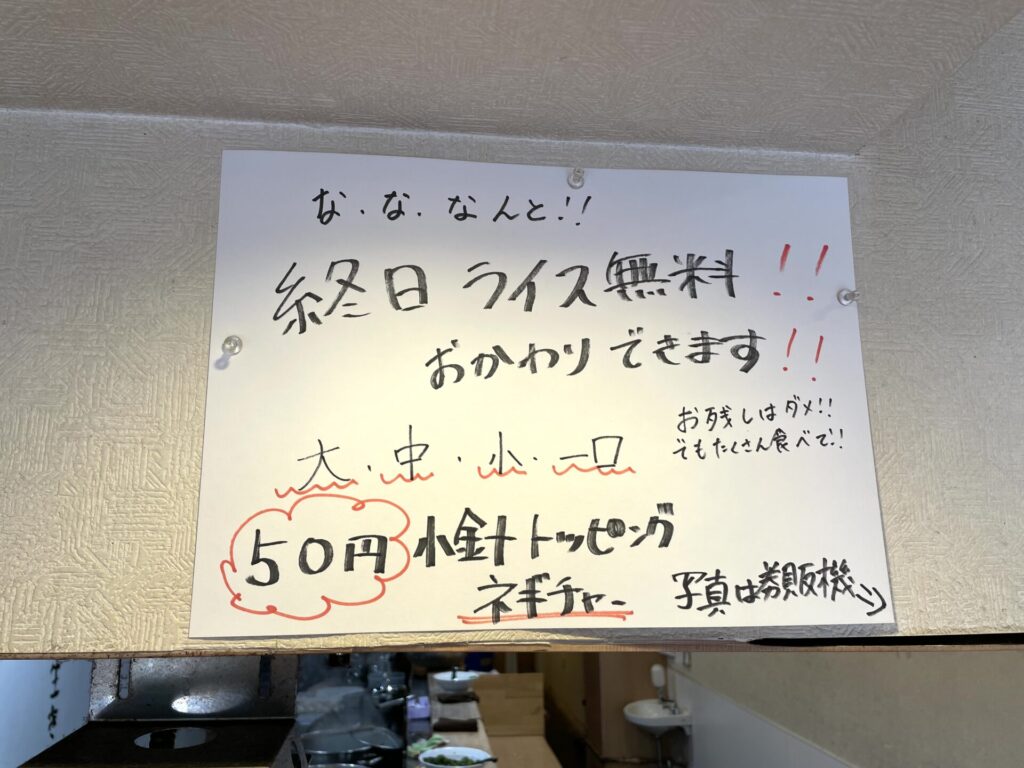 な・な・なんと!!
終日 ライス無料!!
おかわりできます!!
お残しはダメ!!
でもたくさん食べて!!
大・中・小・一口
50円 小金井トッピング
ネギチャー
写真は券販機→